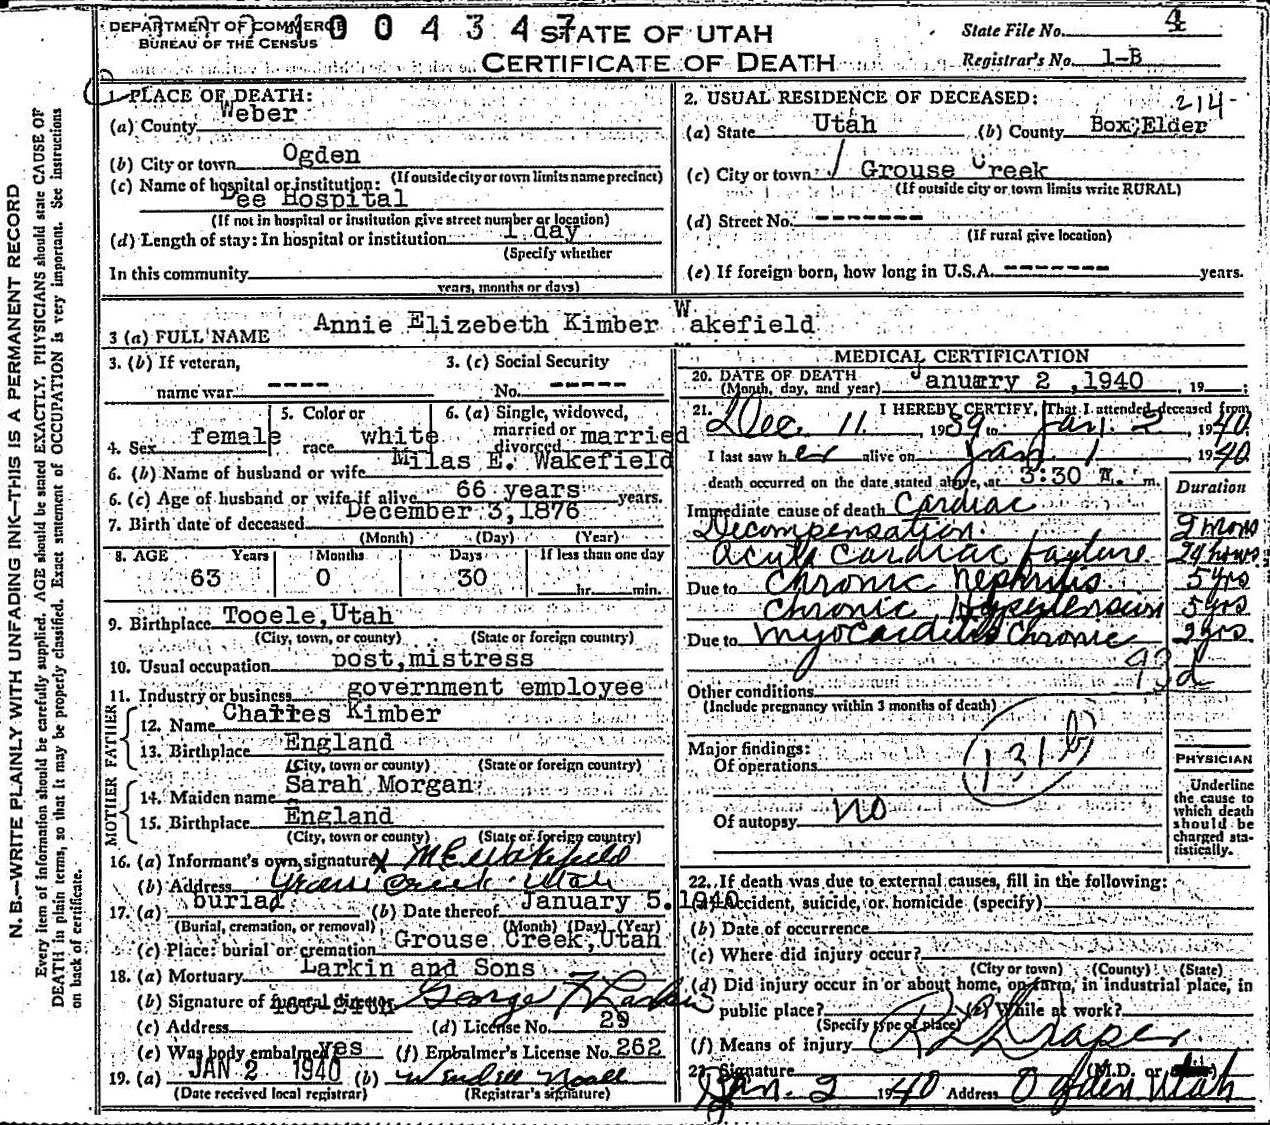 DEPARTMENT OF COMMERCE
BUREAU OF THE CENSUS
1004347
STATE OF UTAH
CERTIFICATE OF DEATH
State File No. 4
Registrar's No. 1-B
N. B.—WRITE PLAINLY WITH UNFADING INK—THIS IS A PERMANENT RECORD
Every item of information should be carefully supplied. AGE should be stated EXACTLY. PHYSICIANS should state CAUSE OF
DEATH in plain terms, so that it may be properly classified. Exact statement of OCCUPATION is very important. See instructions
on back of certificate.
1. PLACE OF DEATH:
(a) County Weber
(b) City or town Ogden
(If outside city or town limits name precinct)
(c) Name of hospital or institution:
Dee Hospital
(If not in hospital or institution give street number or location)
(d) Length of stay: In hospital or institution 1 day
(Specify whether
In this community
years, months or days)
2. USUAL RESIDENCE OF DECEASED:
214-
(a) State Utah (b) County Box Elder
(c) City or town Grouse Creek
(If outside city or town limits write RURAL)
(d) Street No. -------
(If rural give location)
(e) If foreign born, how long in U.S.A. ------- years.
3 (a) FULL NAME Annie Elizebeth Kimber Wakefield
3. (b) If veteran,
name war ----
3. (c) Social Security
No. -----
4. Sex female
5. Color or
race white
6. (a) Single, widowed,
married or
divorced married
6. (b) Name of husband or wife Milas E. Wakefield
6. (c) Age of husband or wife if alive 66 years years.
7. Birth date of deceased December 3, 1876
(Month) (Day) (Year)
8. AGE Years Months Days If less than one day
63 0 30 hr. min.
9. Birthplace Tooele, Utah
(City, town, or county) (State or foreign country)
10. Usual occupation post,mistress
11. Industry or business government employee
FATHER
12. Name Charles Kimber
13. Birthplace England
(City, town or county) (State or foreign country)
MOTHER
14. Maiden name Sarah Morgan
15. Birthplace England
(City, town or county) (State or foreign country)
16. (a) Informant's own signature X M E Wakefield
(b) Address Grouse Creek Utah
17. (a) burial (b) Date thereof January 5. 1940
(Burial, cremation, or removal) (Month) (Day) (Year)
(c) Place: burial or cremation Grouse Creek, Utah
18. (a) Mortuary Larkin and Sons
(b) Signature of funeral director George F Larkin
(c) Address 466-24th (d) License No. 29
(e) Was body embalmed yes (f) Embalmer's License No. 262
19. (a) JAN 2 1940 (b)
(Date received local registrar) (Registrar's signature)
MEDICAL CERTIFICATION
20. DATE OF DEATH
(Month, day, and year) January 2 , 1940 , 19 ;
21. I HEREBY CERTIFY, That I attended deceased from
Dec. 11. , 1939 to Jan. 2 , 1940
I last saw her alive on Jan 1 , 1940
death occurred on the date stated above, at 3:30 A. m.
Duration
Immediate cause of death Cardiac
Decompensation. 2 mons
acute cardiac faylure 24 hours
Due to Chronic Nephritis 5 yrs
Chronic Hypertension 5 yrs
Due to Myocarditis Chronic 2 yrs
93d
Other conditions
(Include pregnancy within 3 months of death)
Major findings:
Of operations
131b
Of autopsy no
PHYSICIAN
Underline
the cause to
which death
should be
charged sta-
tistically.
22. If death was due to external causes, fill in the following:
(a) Accident, suicide, or homicide (specify)
(b) Date of occurrence
(c) Where did injury occur?
(City or town) (County) (State)
(d) Did injury occur in or about home, on farm, in industrial place, in
public place? (e) While at work?
(Specify type of place)
(f) Means of injury
23. Signature Draper (M.D. or
Jan. 2 1940 Address Ogden Utah